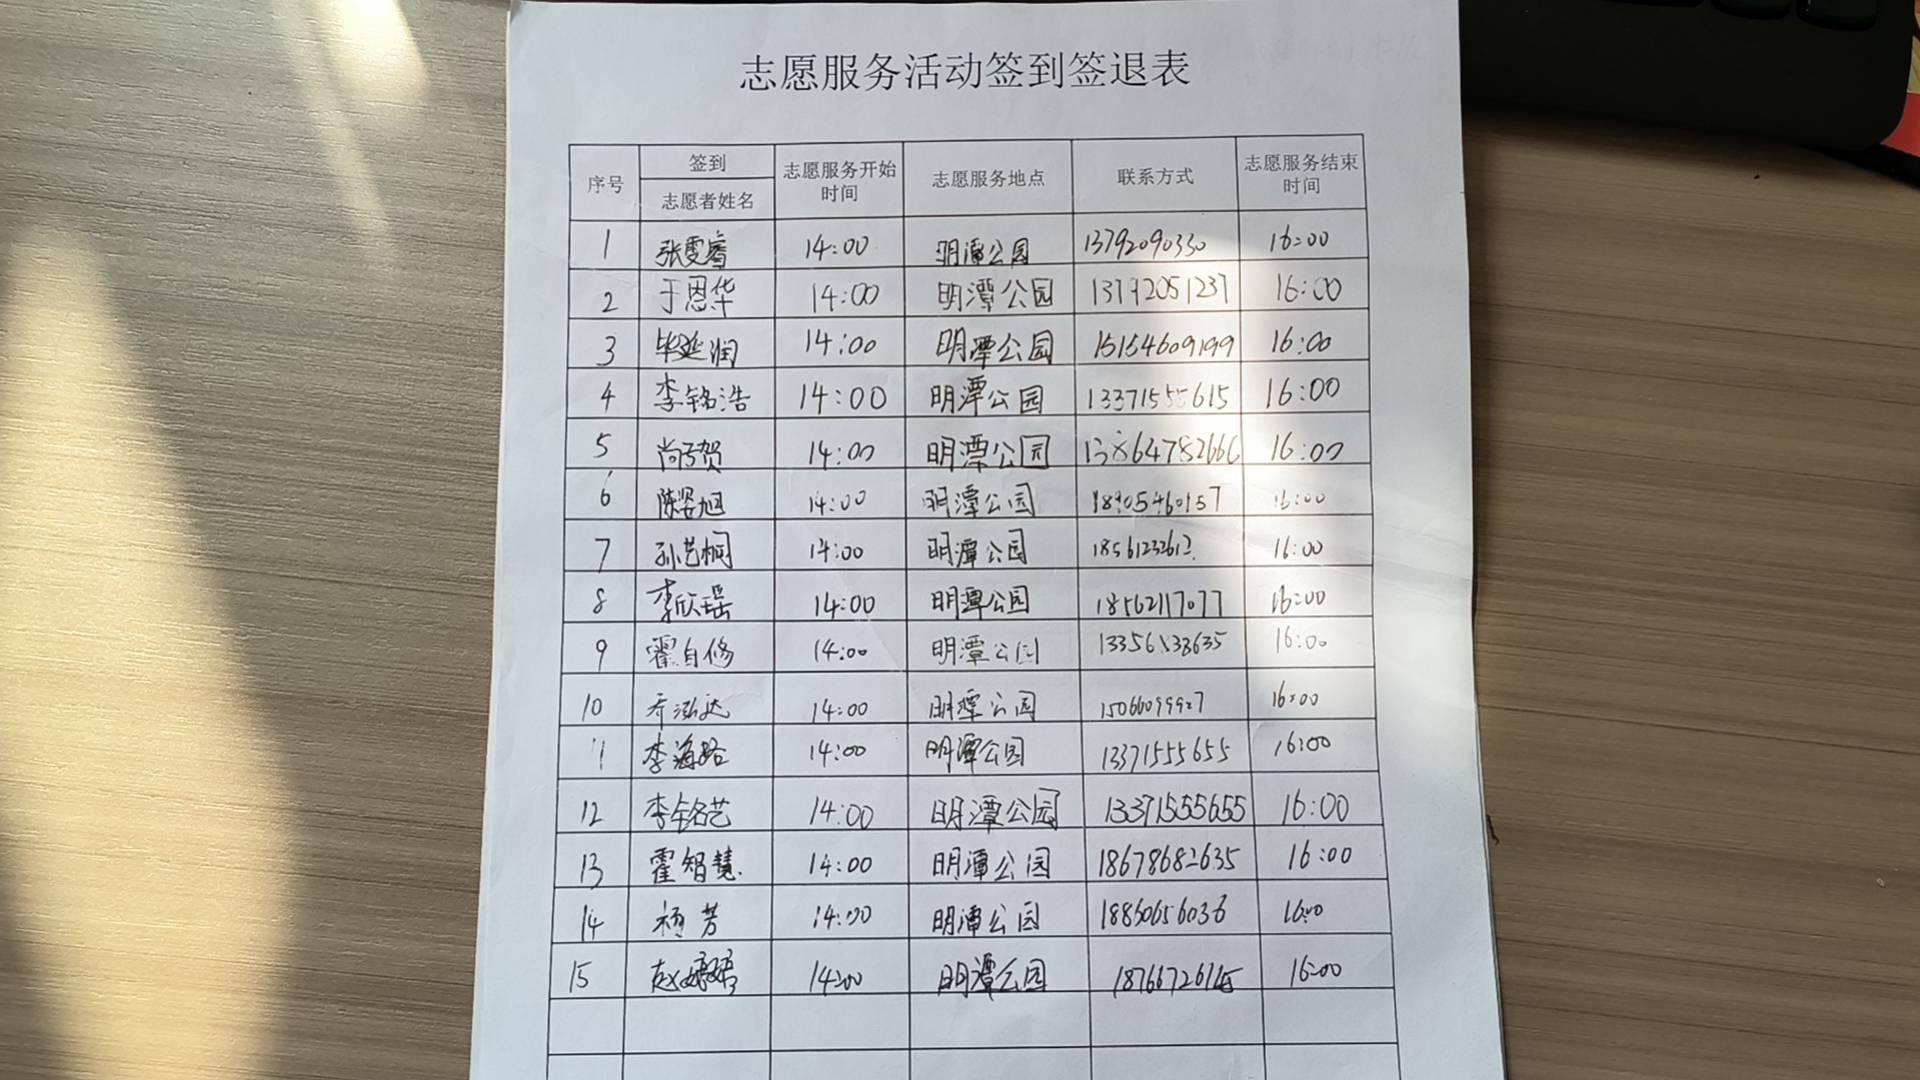 志愿服务活动签到签退表
序号 签到 志愿者姓名 志愿服务开始时间 志愿服务地点 联系方式 志愿服务结束时间
1 张雯睿 14:00 明潭公园 13792090330 16:00
2 于恩华 14:00 明潭公园 13792051237 16:00
3 毕延润 14:00 明潭公园 15154609199 16:00
4 李铭浩 14:00 明潭公园 13371555615 16:00
5 尚子贺 14:00 明潭公园 13864782666 16:00
6 陈姿旭 14:00 明潭公园 18905460157 16:00
7 孙艺桐 14:00 明潭公园 16:00
8 李欣瑶 14:00 明潭公园 18562117077 16:00
9 霍自修 14:00 明潭公园 16:00
10 乔泓达 14:00 明潭公园 15066099927 16:00
11 李海路 14:00 明潭公园 13371555655 16:00
12 李铭艺 14:00 明潭公园 13371555655 16:00
13 霍智慧 14:00 明潭公园 18678682635 16:00
14 杨芳 14:00 明潭公园 18860656036 16:00
15 14:00 明潭公园 16:00